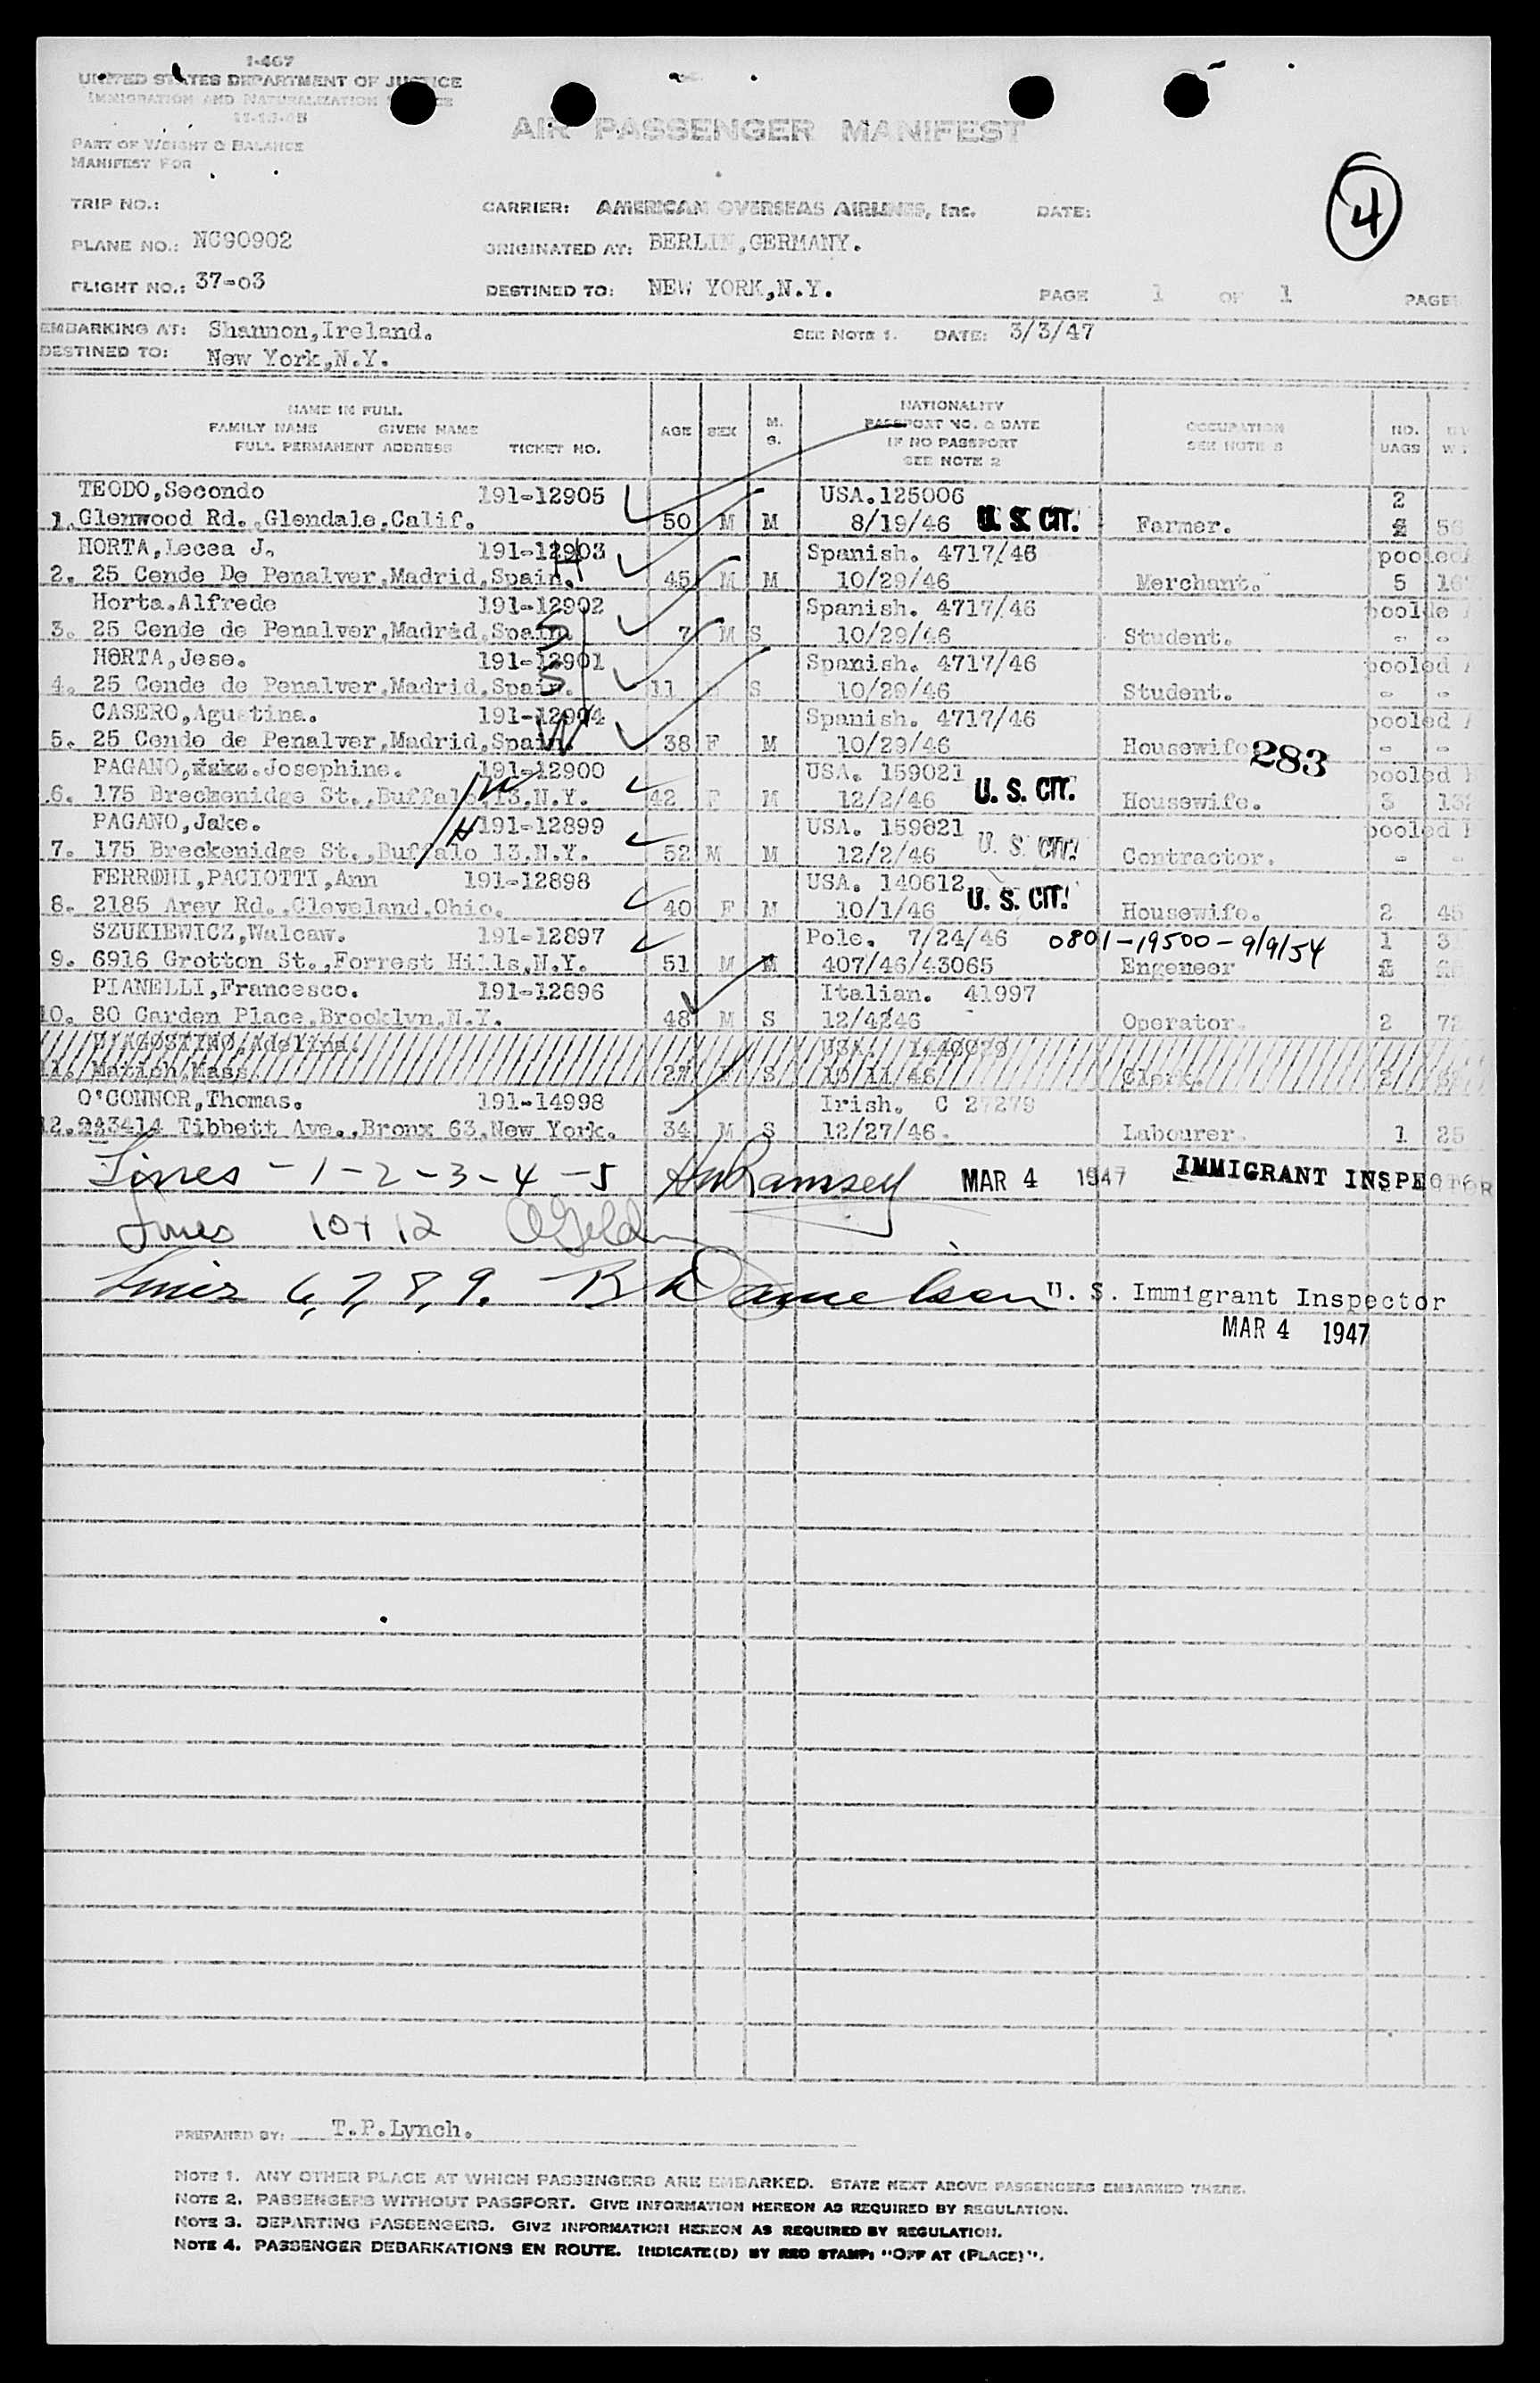 I-467
UNITED STATES DEPARTMENT OF JUSTICE
IMMIGRATION AND NATURALIZATION
AIR PASSENGER MANIFEST
PART OF WEIGHT & BALANCE
MANIFEST FOR
4
TRIP NO.: CARRIER: AMERICAN OVERSEAS AIRLINES, Inc. DATE:
PLANE NO.: NC90902 ORIGINATED AT: BERLIN,GERMANY.
FLIGHT NO.: 37-03 DESTINED TO: NEW YORK,N.Y. PAGE 1 OF 1 PAGE
EMBARKING AT: Shannon,Ireland. SEE NOTE 1. DATE: 3/3/47
DESTINED TO: New York,N.Y.
NAME IN FULL NATIONALITY
FAMILY NAME GIVEN NAME AGE SEX M. PASSPORT NO. & DATE OCCUPATION NO.
FULL PERMANENT ADDRESS TICKET NO. S. IF NO PASSPORT SEE NOTE 3 BAGS
SEE NOTE 2
TEODO,Secondo 191-12905 USA.125006 2
1. Glenwood Rd.,Glendale,Calif. 50 M M 8/19/46 U.S. CIT. Farmer. 56
HORTA,Lecea J. 191-12903 Spanish. 4717/46 pooled
2. 25 Conde De Penalver,Madrid,Spain. H 45 M M 10/29/46 Merchant. 5 16
Horta.Alfredo 191-12902 Spanish. 4717/46 poolde
3. 25 Cende de Penalver,Madrid,Spain. S 7 M S 10/29/46 Student. - -
HORTA,Jose. 191-12901 Spanish. 4717/46 pooled
4. 25 Cende de Penalver,Madrid,Spain. S 11 M S 10/29/46 Student. - -
CASERO,Agustina. 191-12904 Spanish. 4717/46 pooled
5. 25 Condo de Penalver,Madrid,Spain. W 38 F M 10/29/46 Housewife 283 - -
PAGANO, Josephine. 191-12900 USA. 159021 pooled
6. 175 Breckenidge St.,Buffalo,13.N.Y. W 42 F M 12/2/46 U. S. CIT. Housewife. 3 13
PAGANO,Jake. H 191-12899 USA. 159021 pooled
7. 175 Breckenidge St.,Buffalo 13.N.Y. 52 M M 12/2/46 U. S. CIT. Contractor. - -
FERRONI,PACIOTTI,Ann 191-12898 USA. 140612
8. 2185 Arey Rd.,Cleveland,Ohio. 40 F M 10/1/46 U. S. CIT. Housewife. 2 45
SZUKIEWICZ,Walcaw. 191-12897 Pole. 7/24/46 0801-19500-9/9/54 1 3
9. 6916 Grotton St.,Forrest Hills,N.Y. 51 M M 407/46/43065 Engeneer
PIANELLI,Francesco. 191-12896 Italian. 41997
10. 80 Garden Place,Brooklyn,N.Y. 48 M S 12/4/46 Operator. 2 72
D'AGOSTINO,Adelina. USA.
11. Mass. 27 F S 10/11/46 Clerk. 2
O'CONNOR,Thomas. 191-14998 Irish. C 27279
12. 3414 Tibbett Ave.,Bronx 63,New York. 34 M S 12/27/46. Labourer. 1 25
Lines - 1 - 2 - 3 - 4 - 5 HW Ramsey MAR 4 1947 IMMIGRANT INSPECTOR
Lines 10 + 12
Lines 6, 7, 8, 9. B Danielson U. S. Immigrant Inspector
MAR 4 1947
PREPARED BY: T.P.Lynch.
NOTE 1. ANY OTHER PLACE AT WHICH PASSENGERS ARE EMBARKED. STATE NEXT ABOVE PASSENGERS EMBARKED THERE.
NOTE 2. PASSENGERS WITHOUT PASSPORT. GIVE INFORMATION HEREON AS REQUIRED BY REGULATION.
NOTE 3. DEPARTING PASSENGERS. GIVE INFORMATION HEREON AS REQUIRED BY REGULATION.
NOTE 4. PASSENGER DEBARKATIONS EN ROUTE. INDICATE(D) BY RED STAMP: "OFF AT (PLACE)".